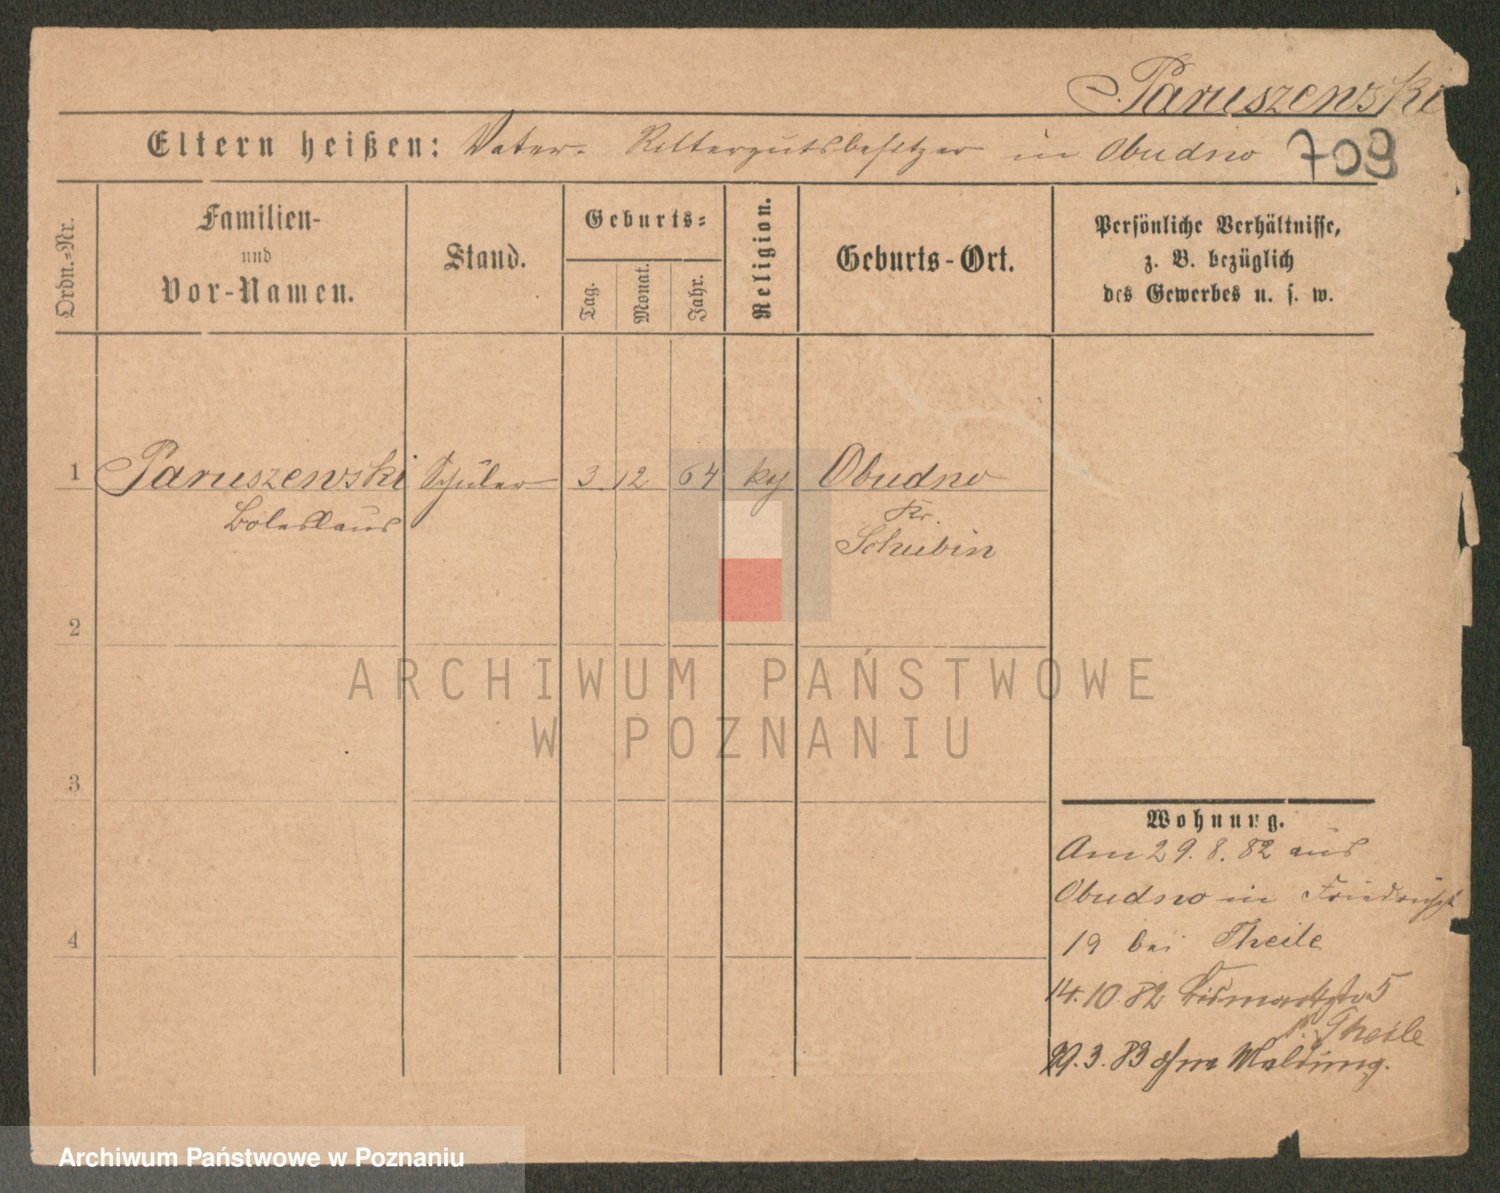 Paruszewski
Eltern heißen: Vater. Rittergutsbesitzer in Obudno 709
Ordn.-Nr.
Familien-
und
Vor-Namen.
Stand.
Geburts-
Tag.
Monat.
Jahr.
Religion.
Geburts-Ort.
Persönliche Verhältnisse,
z. B. bezüglich
des Gewerbes u. s. w.
1 Paruszewski Schüler 3 12 64 Obudno
Boleslaus
Kr.
Schubin
2
3
4
Wohnung.
Am 29. 8. 82 aus
Obudno in Friedrichst
19 bei Theile
14. 10. 82 Bismarckstr 5
b. Theile
29. 3. 83 ohne Meldung.
ARCHIWUM PAŃSTWOWE
W POZNANIU
Archiwum Państwowe w Poznaniu